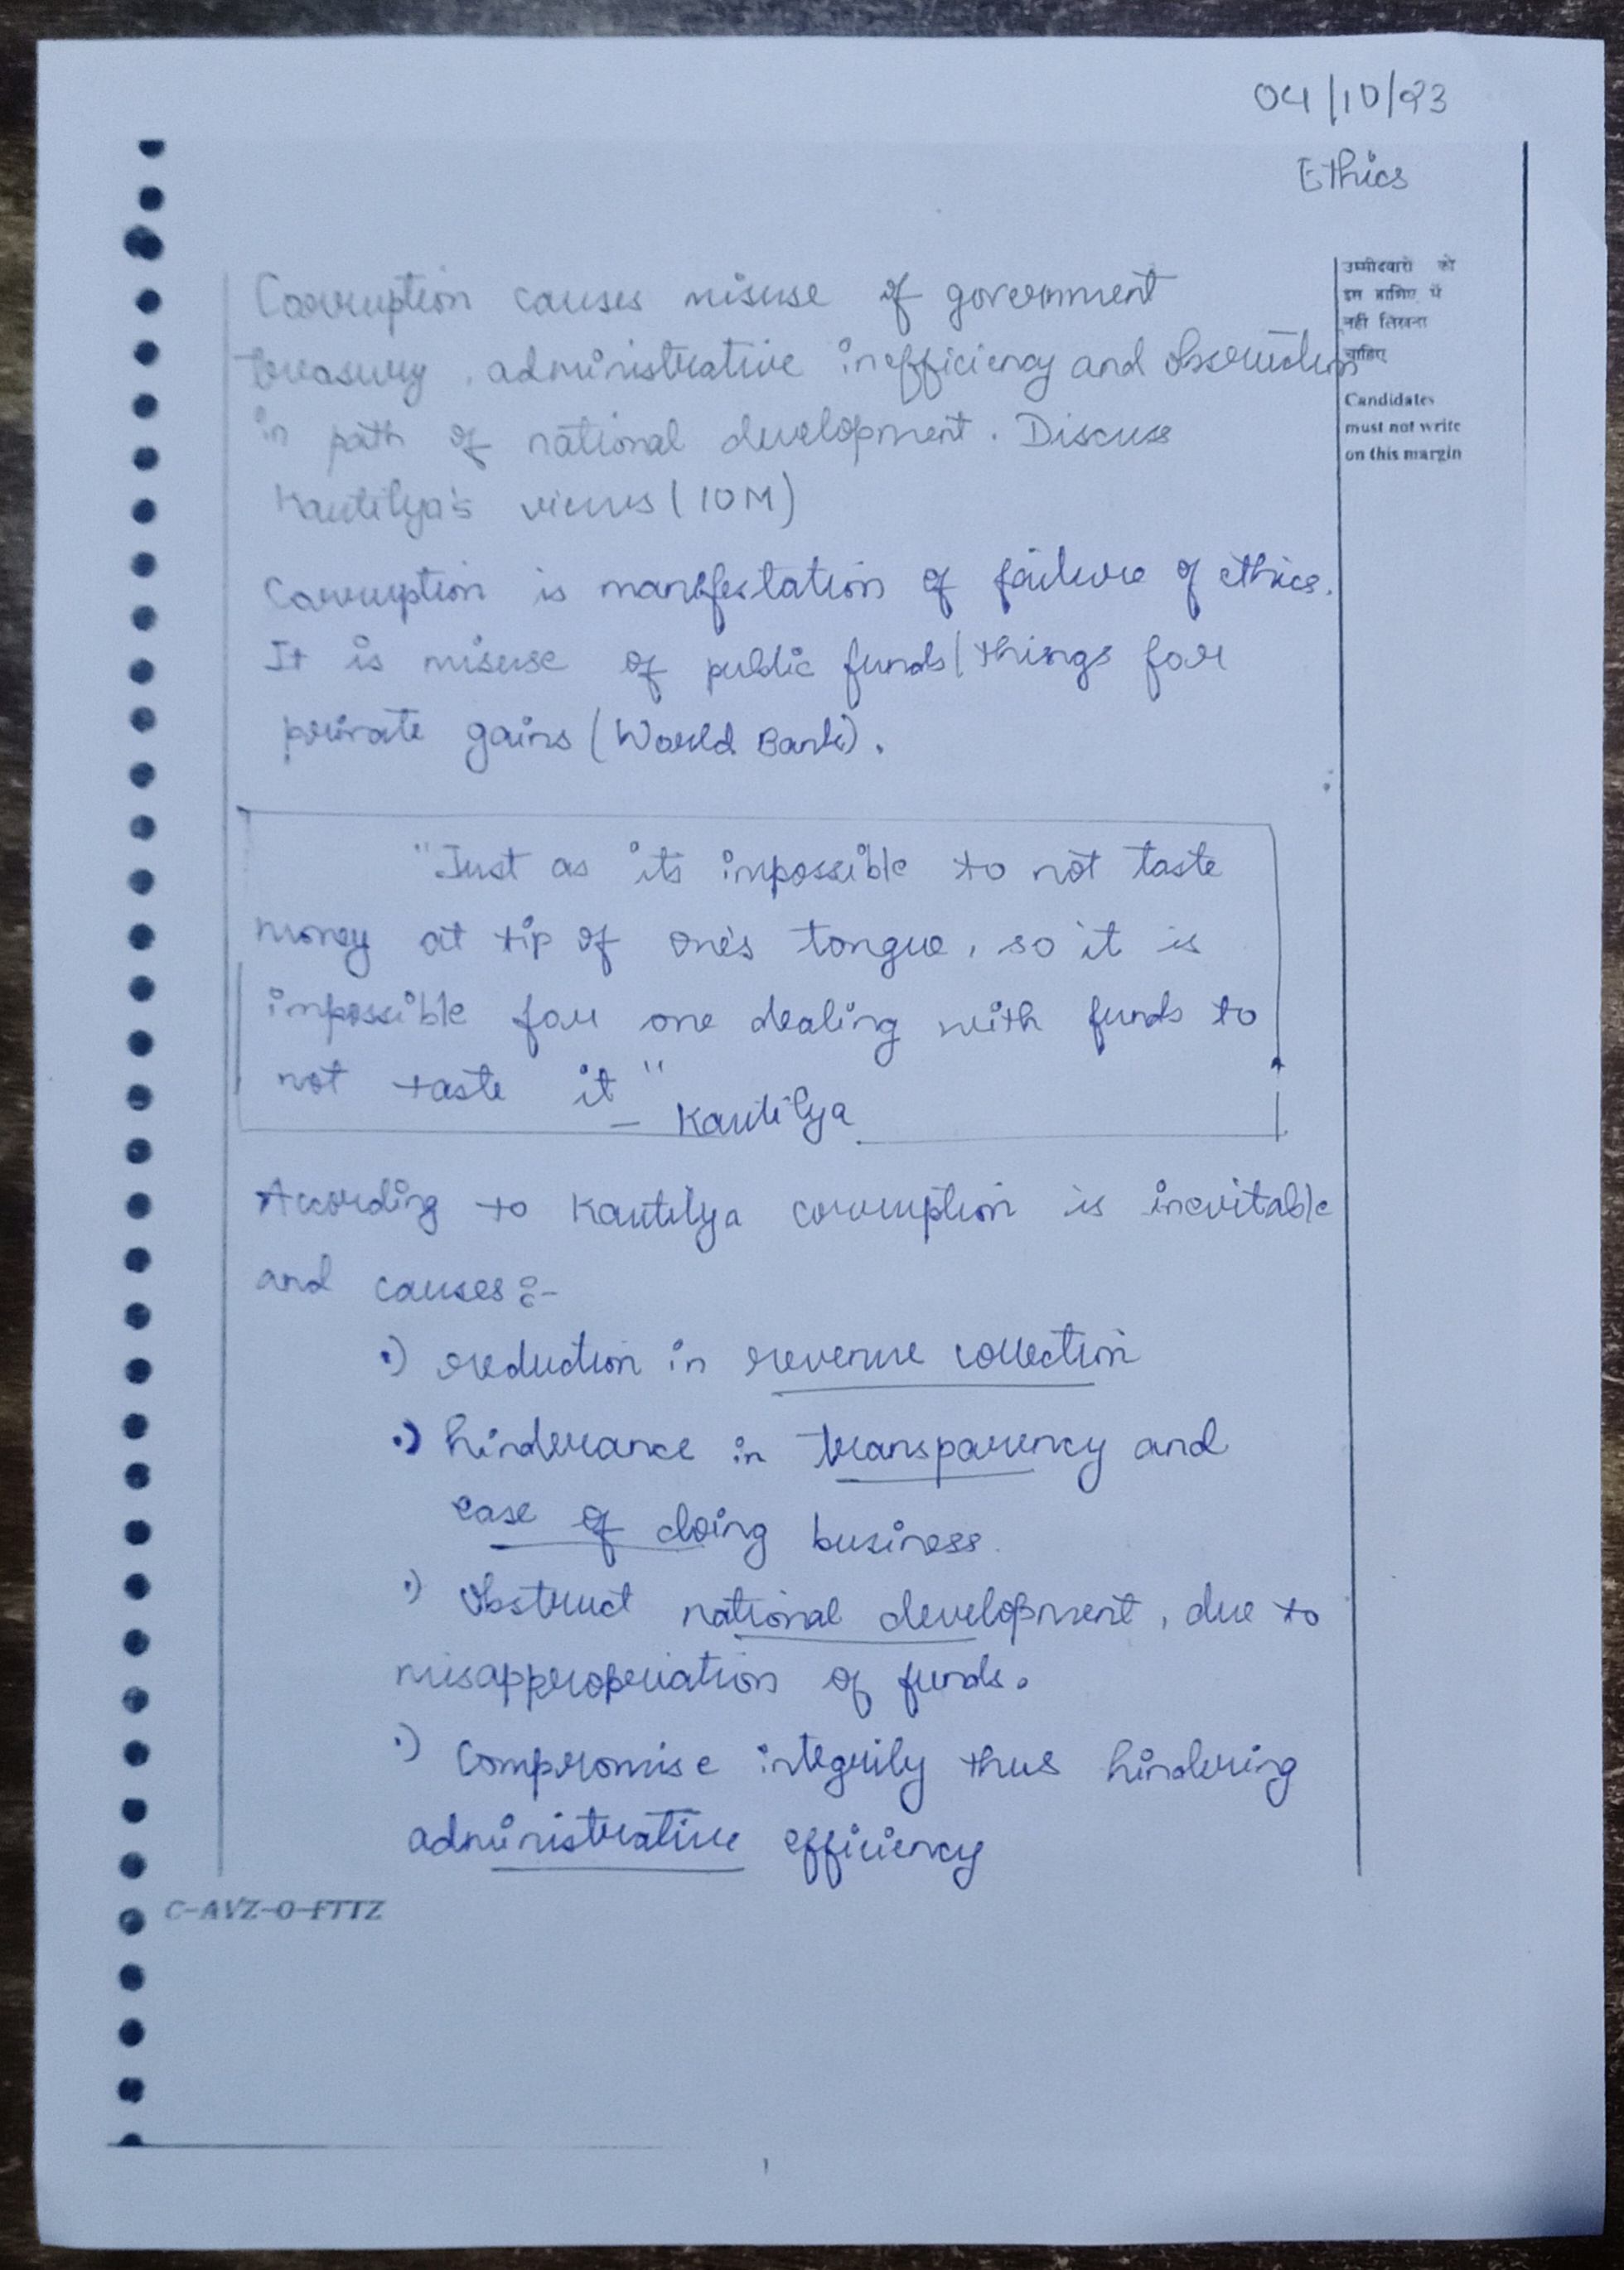 04/10/23
Ethics
उम्मीदवारों को
इस हाशिए में
नहीं लिखना
चाहिए
Candidates
must not write
on this margin
Corruption causes misuse of government
treasury, administrative inefficiency and
in path of national development. Discuss
Kautilya's views (10M)
Corruption is manifestation of failure of ethics.
It is misuse of public funds/things for
private gains (World Bank).
"Just as its impossible to not taste
money at tip of one's tongue, so it is
impossible for one dealing with funds to
not taste it"
- Kautilya
According to Kautilya corruption is inevitable
and causes:-
•) reduction in revenue collection
•) hinderance in transparency and
ease of doing business.
•) obstruct national development, due to
misappropriation of funds.
•) Compromise integrity thus hindering
administrative efficiency
C-AVZ-O-FTTZ
1